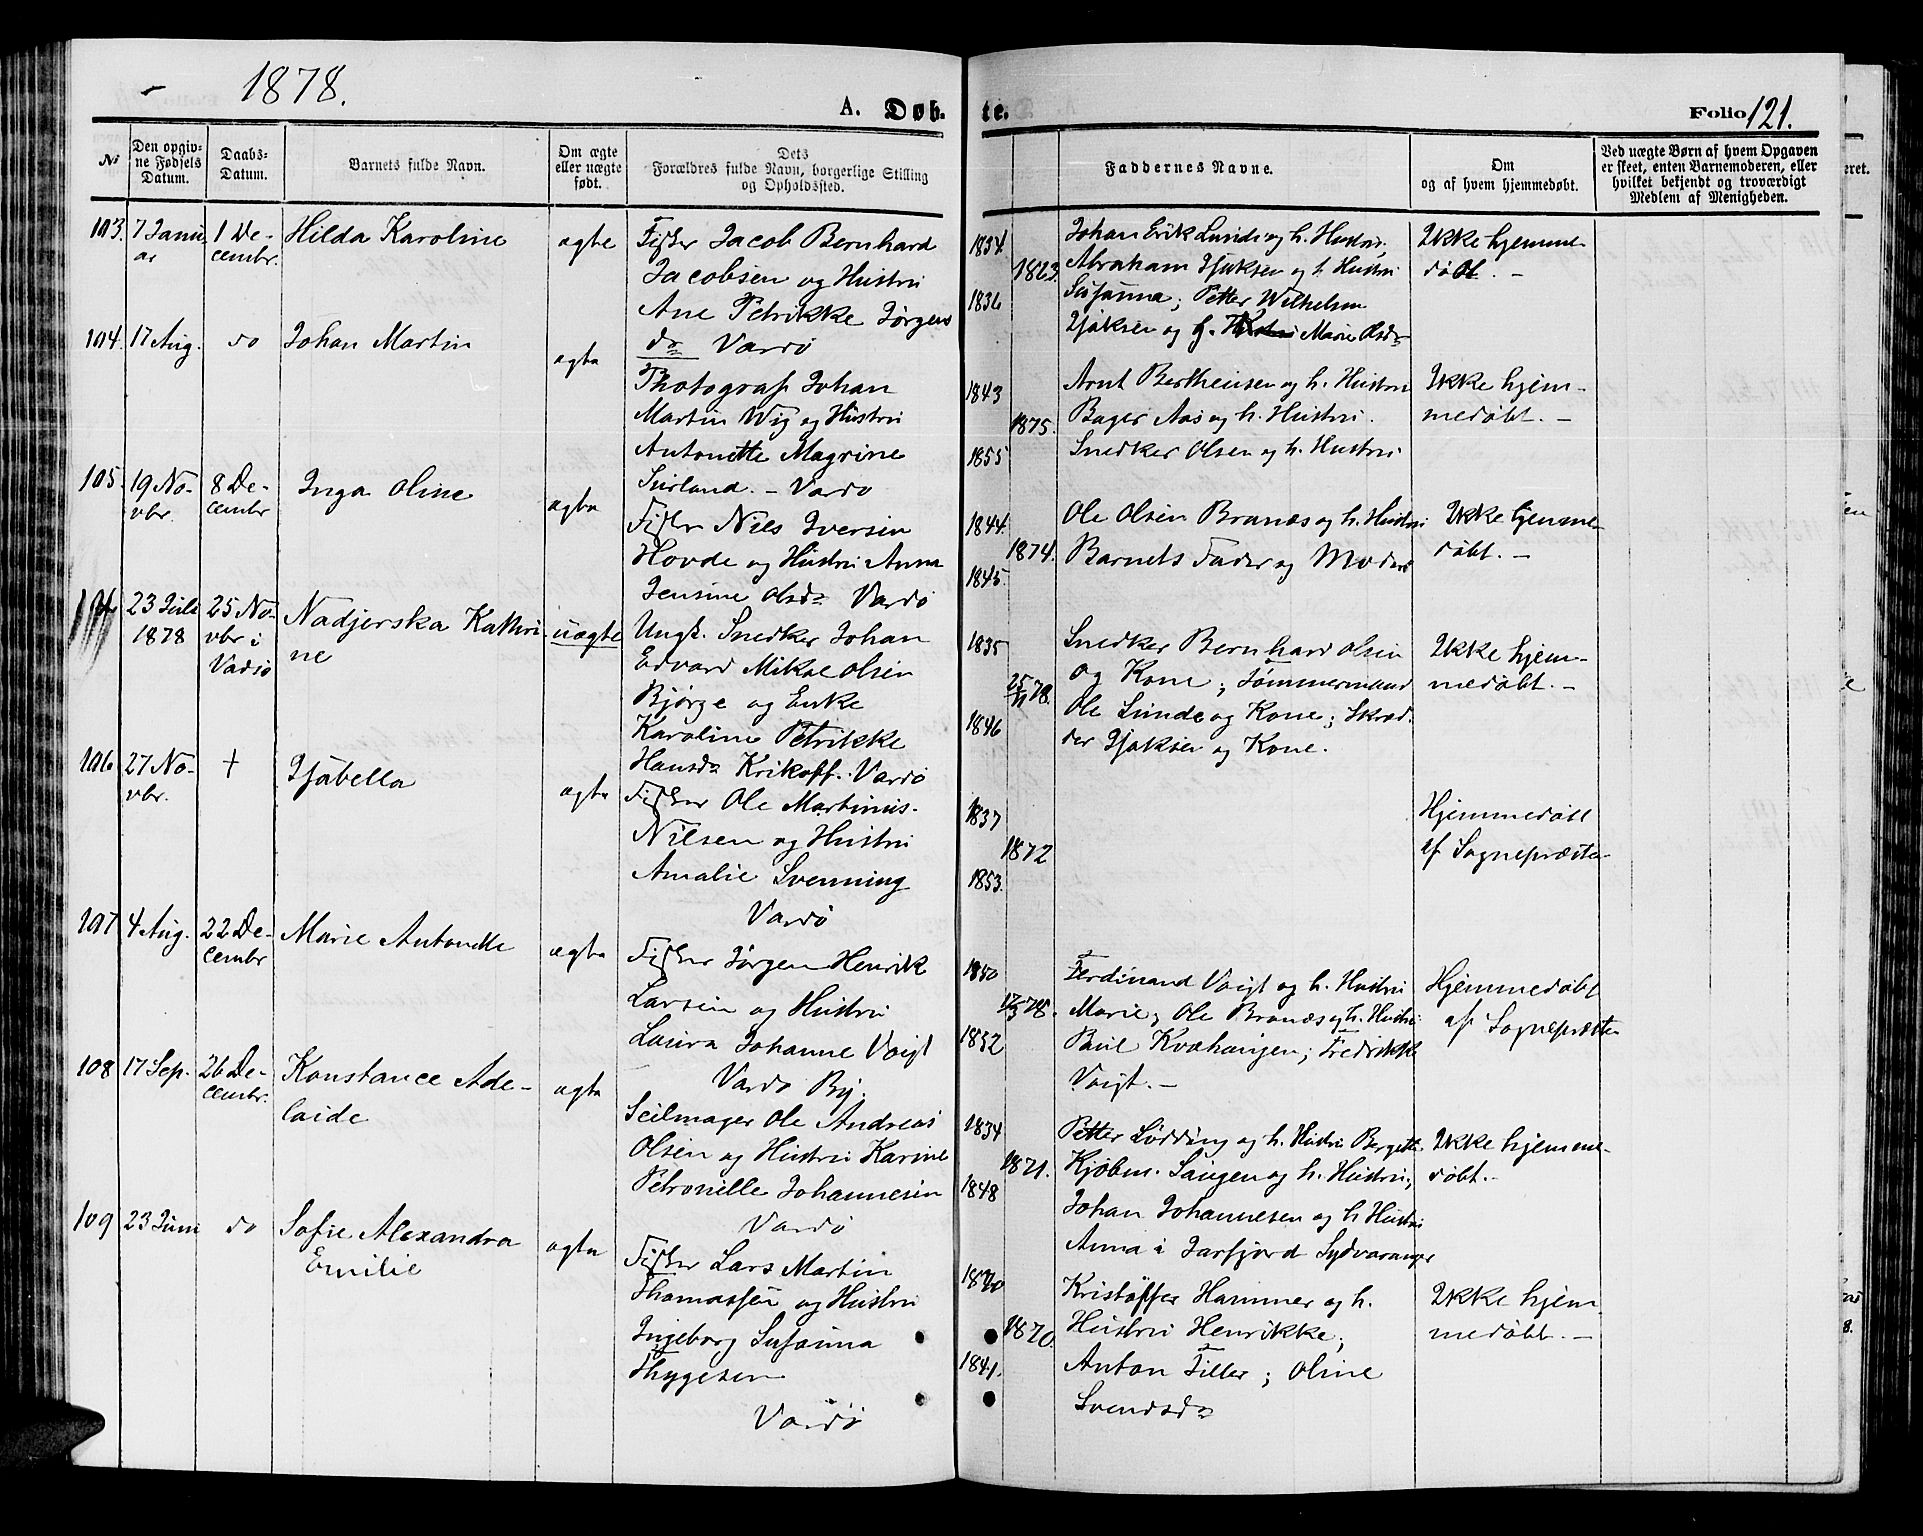 1878.
A. Døb-
te.
Folio 121.
No
Den opgiv-
ne Fødsels
Datum.
Daabs-
Datum.
Barnets fulde Navn.
Om ægte
eller uægte
født.
Dets
Forældres fulde Navn, borgerlige Stilling
og Opholdssted.
Faddernes Navne.
Om
og af hvem hjemmedøbt.
Ved uægte Børn af hvem Opgaven
er skeet, enten Barnemoderen, eller
hvilket bekjendt og troværdigt
Medlem af Menigheden.
103. 7 Janu
ar
1 De-
cembr.
Hilda Karoline
ægte
Fisker Jacob Bernhard
Jacobsen og Hustru
Ane Petrikke Jørgens
da Vardø
1834.
1863.
1836
Johan Erik Lunde og h. Hustru;
Abraham Isaksen og h. Hustru
Susanna; Petter Wilhelm
Isaksen og h. Hustru Marie Olsdr
Ikke hjemme-
døbt. -
104. 17 Aug.
do
Johan Martin
ægte
Photograf Johan
Martin Wig og Hustru
Antonette Magrine
Surland. - Vardø
1843
1875.
1855
Arnt Bertheusen og h. Hustru
Bager Aas og h. Hustru.
Snedker Olsen og h. Hustru
Ikke hjem-
medøbt. -
105. 19 No-
vbr.
8 De-
cembr
Inga Oline
ægte
Fisker Nils Iversen
Hovde og Hustru Anna
Jensine Olsda Vardø
1844.
1874.
1845.
Ole Olsen Branæs og h. Hustru
Barnets Fader og Moder
Ikke hjemme-
døbt. -
23 Juli
1878
25 No-
vbr i
Vadsø
Nadjerska Kathri-
ne
uægte
Ungk. Snedker Johan
Edvard Mikal Olsen
Bjørge og Enke
Karoline Petrikke
Hansda Krikoff. Vardø
1835
25/11 78.
1846
Snedker Bernhard Olsen
og Kone; Tømmermand
Ole Lunde og Kone; Skræd-
der Isaksen og Kone.
Ikke hjem-
medøbt. -
106 27 No-
vbr.
+
Isabella
ægte
Fisker Ole Martinus
Nilsen og Hustru
Amalie Svenning
Vardø
1837
1872
1853.
Hjemmedøbt
af Sognepræsten
107 4 Aug.
22 De-
cembr
Marie Antonette
ægte
Fisker Jørgen Henrik
Larsen og Hustru
Laura Johanne Voigt
Vardø By.
1850
78.
1852
Ferdinand Voigt og h. Hustru
Marie; Ole Branæs og h. Hustru
Paul Kvæhaugen; Fredrikke
Voigt. -
Hjemmedøbt
af Sognepræsten
108 17 Sep.
26 De-
cembr.
Konstance Ade-
laide
ægte
Seilmager Ole Andreas
Olsen og Hustru Karine
Petronelle Johannesen
Vardø
1834
1871.
1848
Petter Lødding og h. Hustru Bergette
Kjøbm. Saugen og h. Hustru;
Johan Johannesen og h Hustru
Anna i Jarfjord Sydvaranger
Ikke hjemme-
døbt. -
109 23 Juni
do
Sofie Alexandra
Emilie
ægte
Fisker Lars Martin
Thomassen og Hustru
Ingeborg Susanna
Thygesen
Vardø
1840
1870.
1841.
Kristoffer Hammer og h.
Hustru Henrikke;
Anton Tiller; Oline
Svendsda
Ikke hjem
medøbt. -